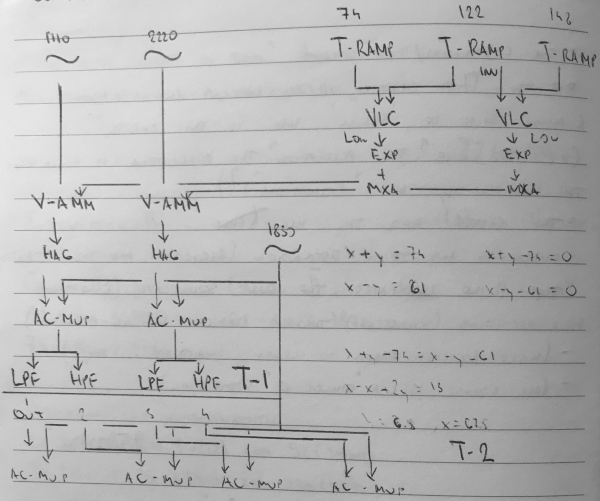 74 122 142
1110 2220 T-RAMP T-RAMP T-RAMP
INV
VLC VLC
LOW LOW
EXP EXP
MXA MXA
V-AMM V-AMM
1830
HAG HAG x+y = 74 x+y-74=0
x-y = 61 x-y-61=0
AC-MUP AC-MUP
x+y-74 = x-y-61
LPF HPF LPF HPF T-1
x-x+2y = 13
OUT 2 3 4 x=67.5
T-2
AC-MUP AC-MUP AC-MUP AC-MUP